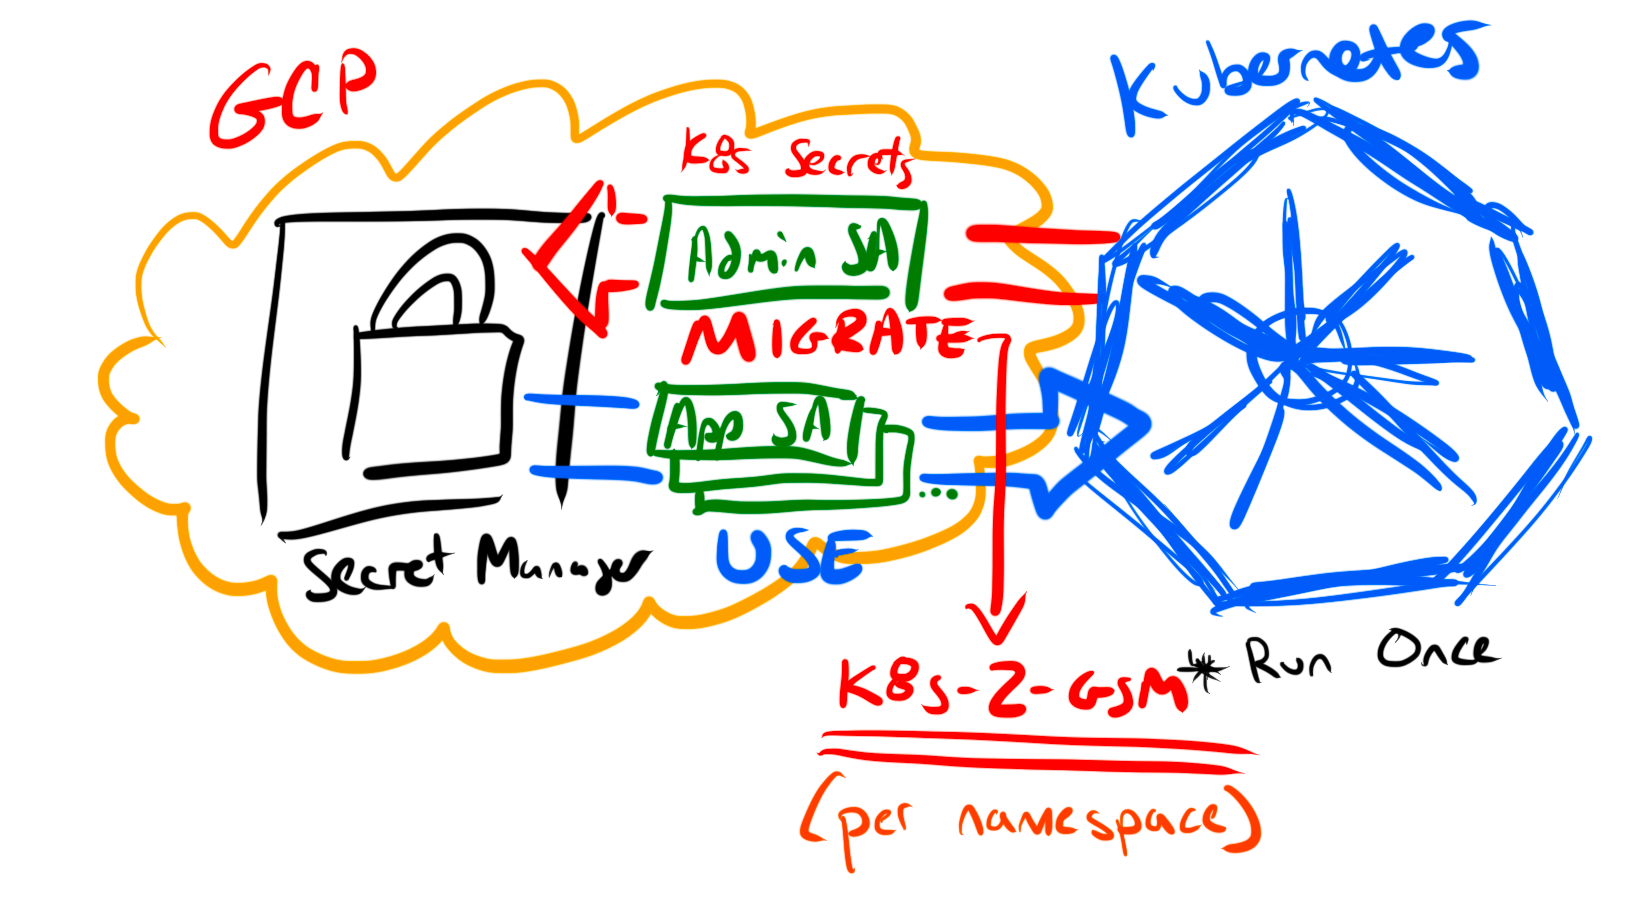 GCP
Kubernetes
K8s Secrets
Admin SA
MIGRATE
App SA
...
USE
Secret Manager
K8s-2-GSM* Run Once
(per namespace)